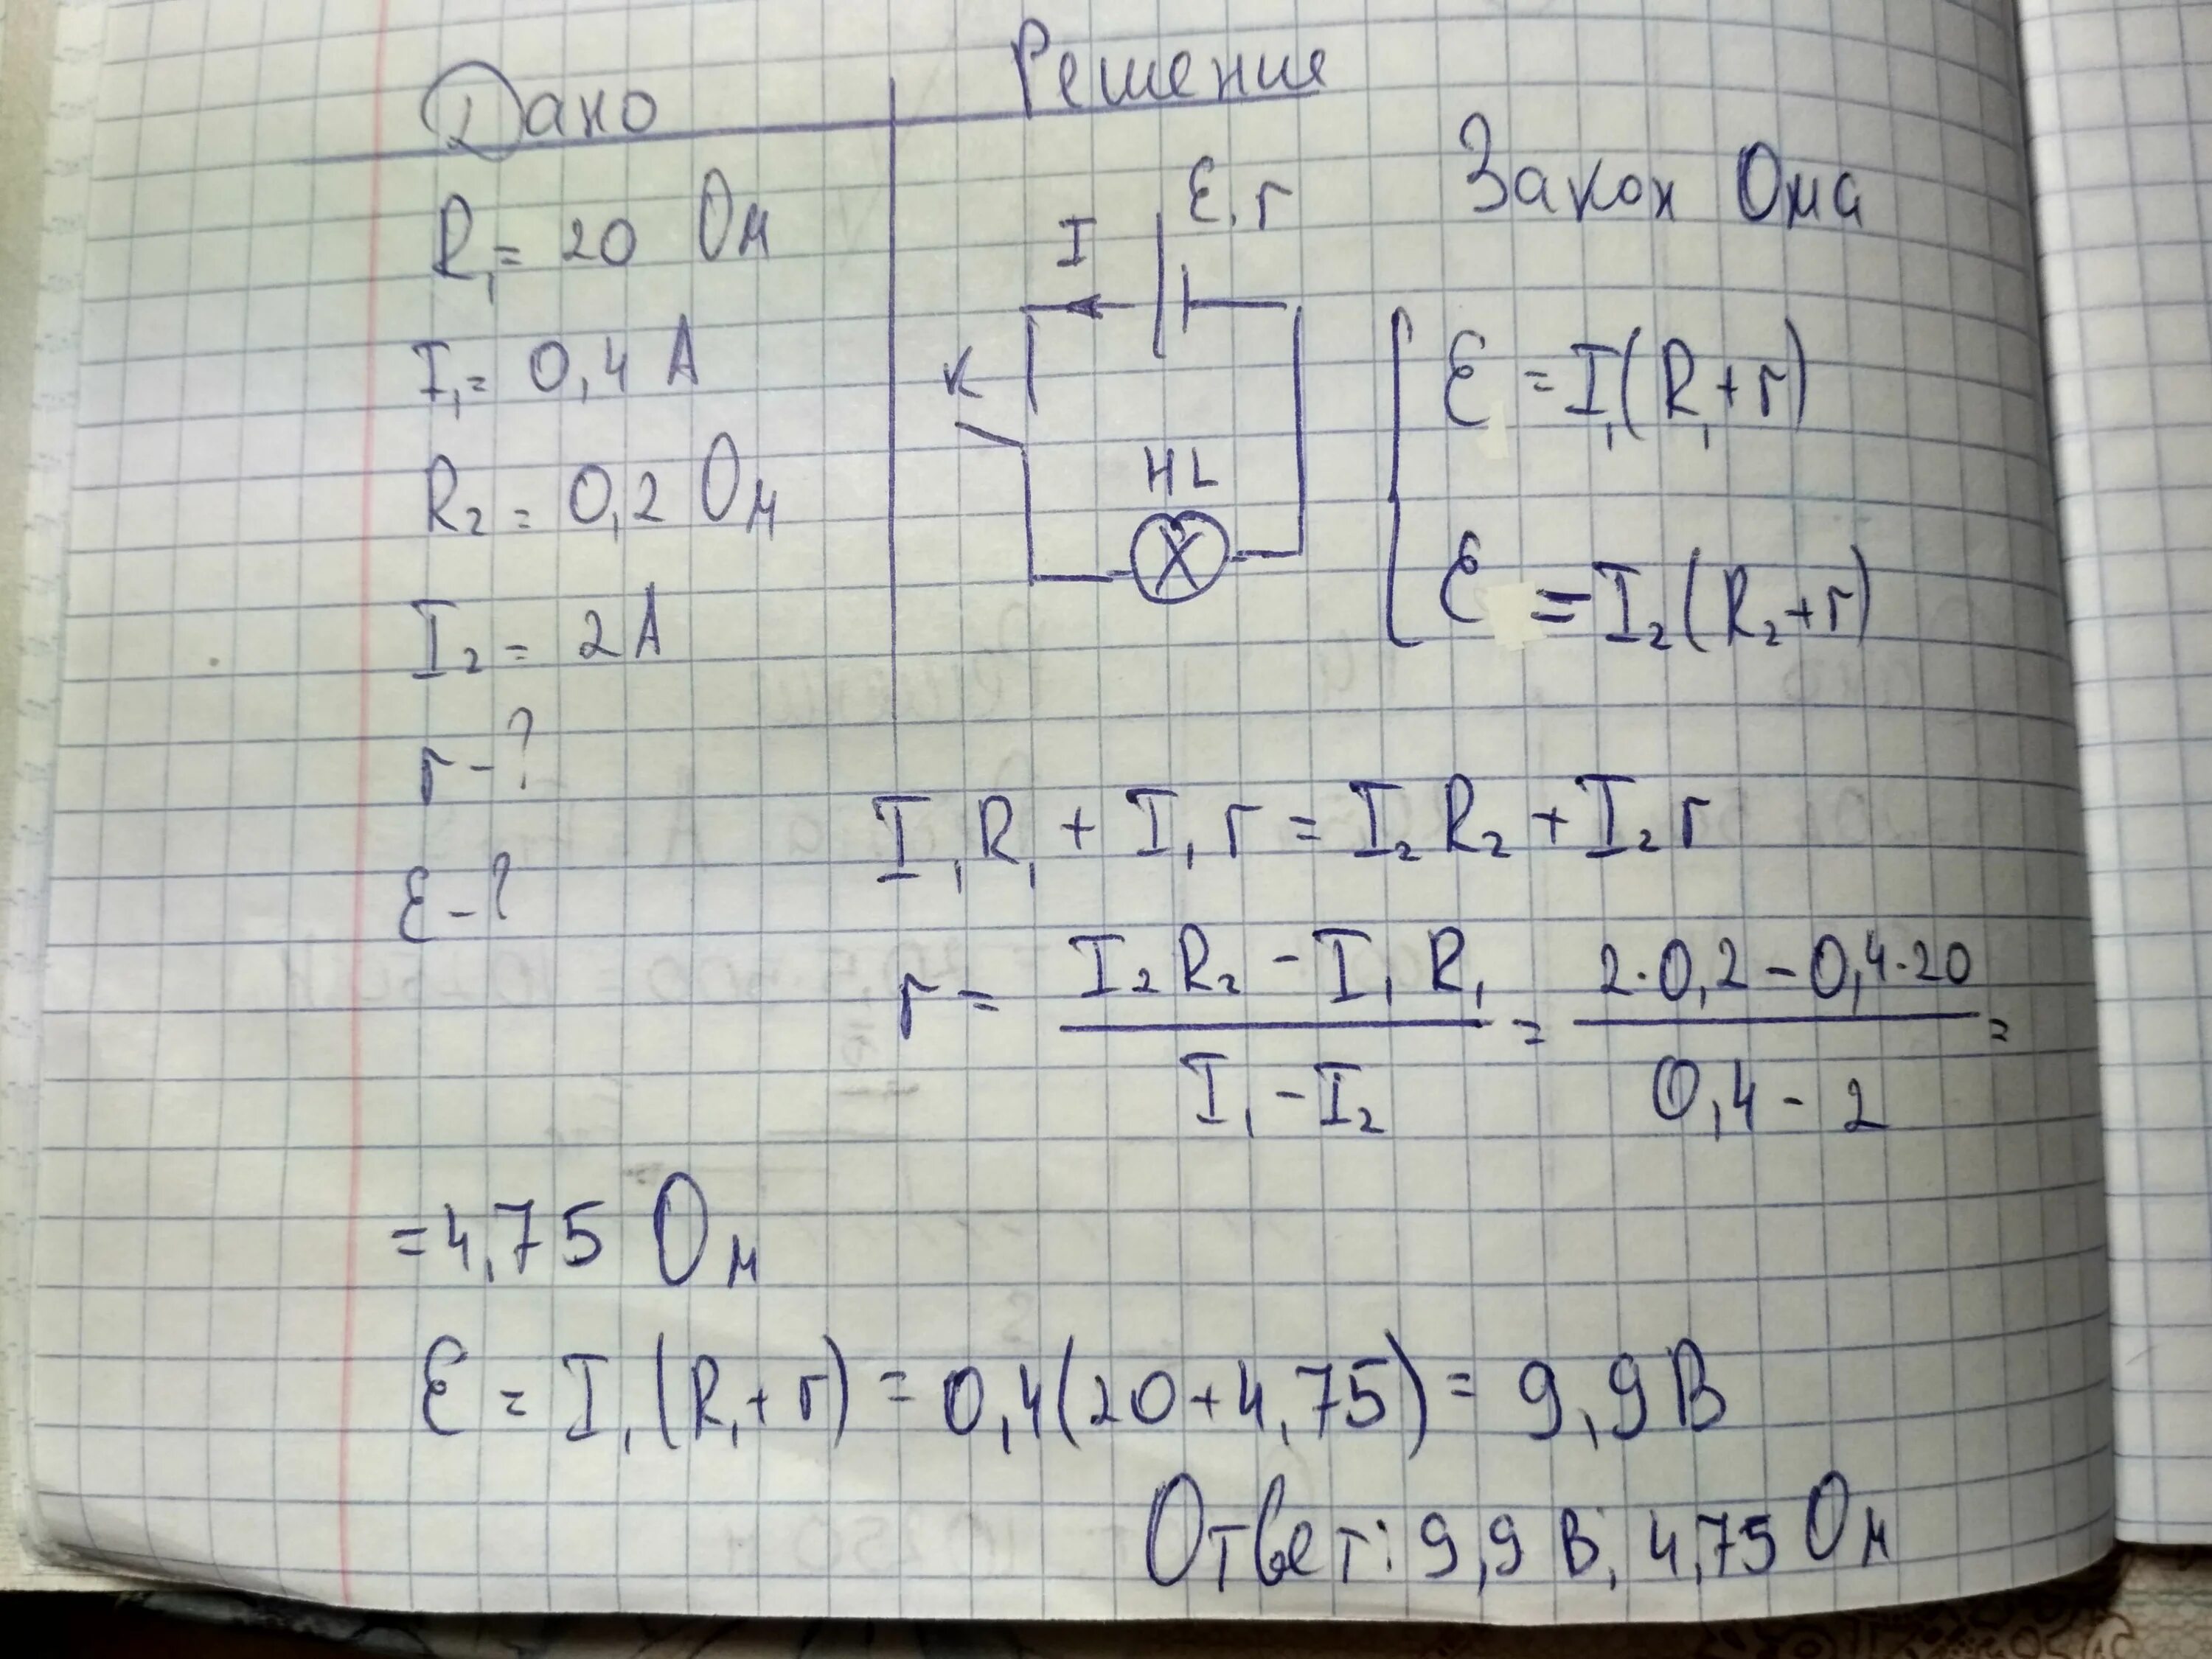 Дано
Решение
R₁ = 20 Ом
I₁ = 0,4 А
R₂ = 0,2 Ом
I₂ = 2 А
r - ?
ℰ - ?
ℰ, r
I
K
HL
Закон Ома
ℰ = I₁(R₁ + r)
ℰ = I₂(R₂ + r)
I₁R₁ + I₁r = I₂R₂ + I₂r
r = (I₂R₂ - I₁R₁)/(I₁ - I₂) = (2·0,2 - 0,4·20)/(0,4 - 2) =
= 4,75 Ом
ℰ = I₁(R₁ + r) = 0,4(20 + 4,75) = 9,9 В
Ответ: 9,9 В; 4,75 Ом